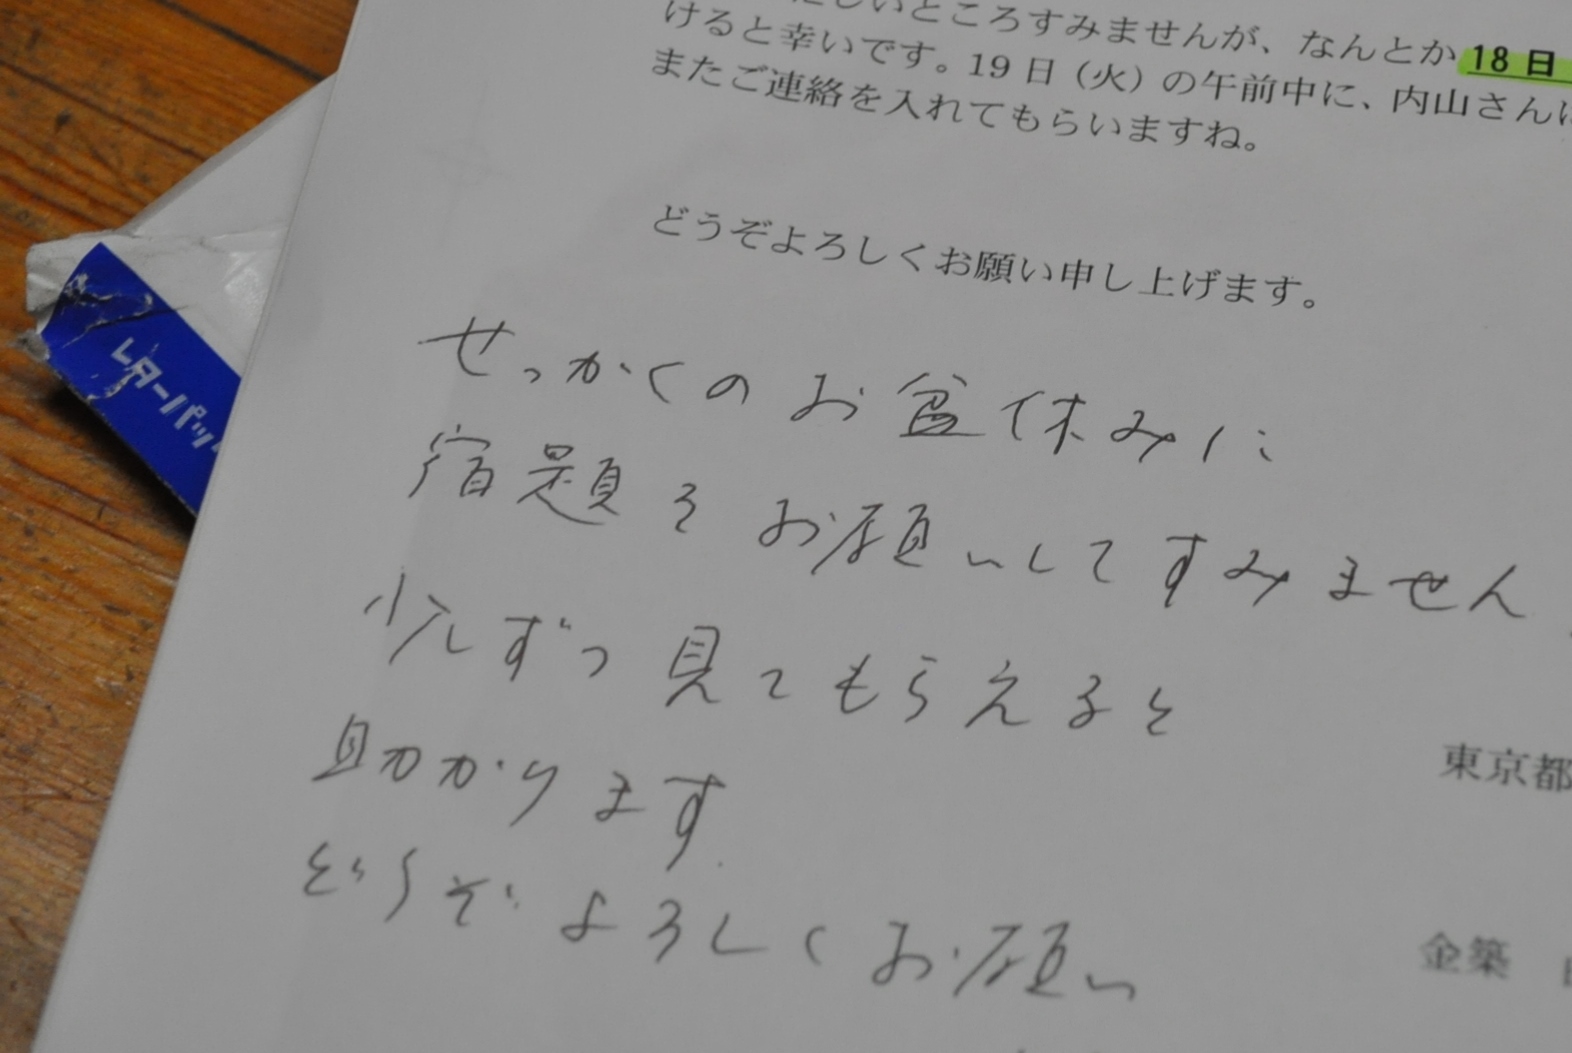 しいところすみませんが、なんとか18日
けると幸いです。19日（火）の午前中に、内山さんに
またご連絡を入れてもらいますね。
どうぞよろしくお願い申し上げます。
せっかくのお盆休みに
宿題をお願いしてすみません
少しずつ見てもらえると
助かります.
どうぞよろしくお願い
レターパック
東京都
金築